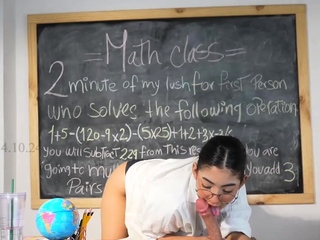 =Math class=
2 minute of my lush for first Person
who solves the following operation
1+5-(120-9x2)-(5x25)+1+2+3x
you will subtract 229 from This res you are
going to mu you add 3
Pairs
4.10.24